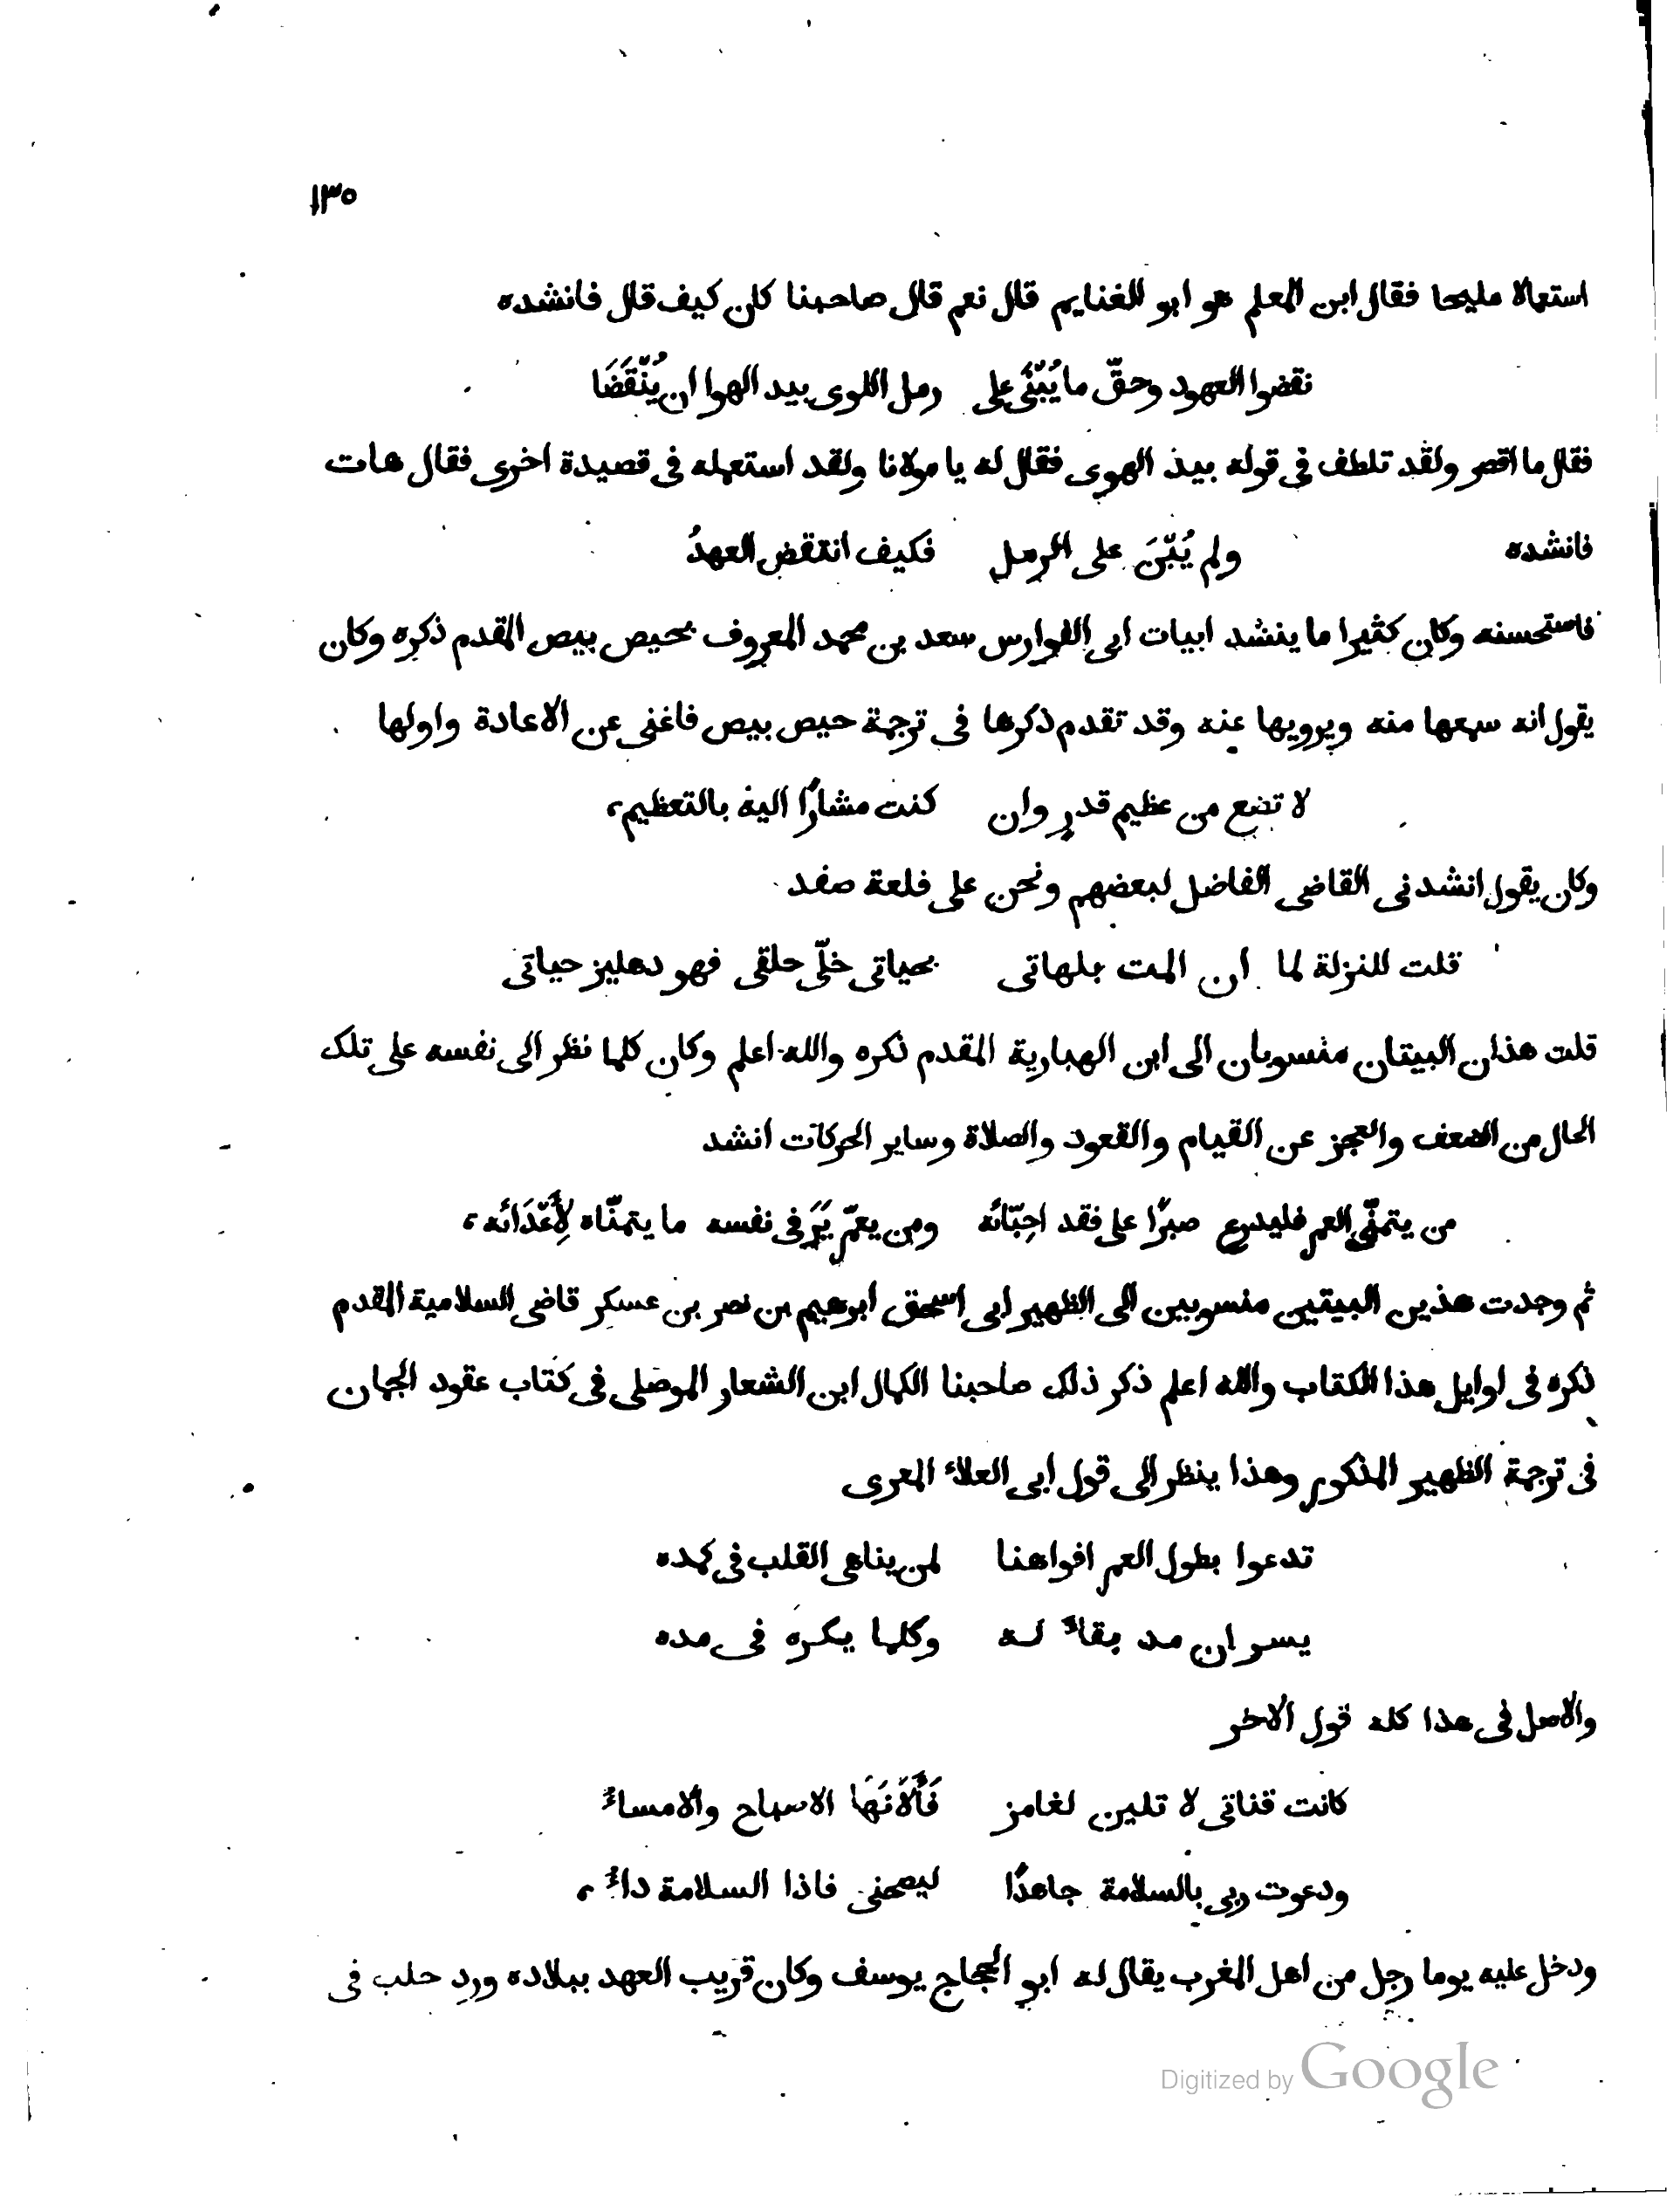 ١٣٥
استعمالا مليحا فقال ابن المعلم هو ابو الغنايم قال نعم قال صاحبنا كان كيف قال فانشده
نقضوا العهود وحقّ ما يُبْنَى على رمل اللوى بيد الهوا ان يُنْقَضَا
فقال ما اقصر ولقد تلطف فى قوله بيد الهوى فقال له يا مولانا ولقد استعمله فى قصيدة اخرى فقال هات
فانشده ولم يُبْنَ على الرمل فكيف انتقض العهدُ
فاستحسنه وكان كثيرا ما ينشد ابيات ابى الفوارس سعد بن محمد المعروف بحيص بيص المقدم ذكره وكان
يقول انه سمعها منه ويرويها عنه وقد تقدم ذكرها فى ترجمة حيص بيص فاغنى عن الاعادة واولها
لا تضع من عظيم قدر وان كنت مشارًا اليه بالتعظيم،
وكان يقول انشدنى القاضى الفاضل لبعضهم ونحن على قلعة صفد
قلت للنزلة لما ان المت بلهاتى بحياتى خلّى حلقى فهو دهليز حياتى
قلت هذان البيتان منسوبان الى ابن الهبارية المقدم ذكره والله اعلم وكان كلما نظر الى نفسه على تلك
الحال من الضعف والعجز عن القيام والقعود والصلاة وساير الحركات انشد
من يتمنّى العمر فليدرع صبرًا على فقد احِبّائه ومن يعمّر يَرَ فى نفسه ما يتمنّاه لِأَعْدَائه،
ثم وجدت هذين البيتين منسوبين الى الظهير ابى اسحق ابرهيم بن نصر بن عسكر قاضى السلامية المقدم
ذكره فى اوايل هذا الكتاب والله اعلم ذكر ذلك صاحبنا الكمال ابن الشعار الموصلى فى كتاب عقود الجمان
فى ترجمة الظهير المذكور وهذا ينظر الى قول ابى العلاء المعرى
تدعوا بطول العمر افواهنا لمن يناهى القلب فى كمده
يسر ان مد بقاءٌ له وكلما يكره فى مده
والاصل فى هذا كله قول الاخر
كانت قناتى لا تلين لغامز فَأَلَانَهَا الاصباح والامساءُ
ودعوت ربى بالسلامة جاهدًا ليصحنى فاذا السلامة داءُ،
ودخل عليه يوما رجل من اهل المغرب يقال له ابو الحجاج يوسف وكان قريب العهد ببلاده ورد حلب فى
Digitized by Google